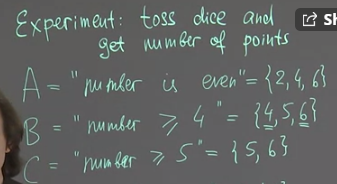 Experiment: toss dice and
get number of points
A = "number is even" = {2, 4, 6}
B = "number ⩾ 4" = {4, 5, 6}
C = "number ⩾ 5" = {5, 6}